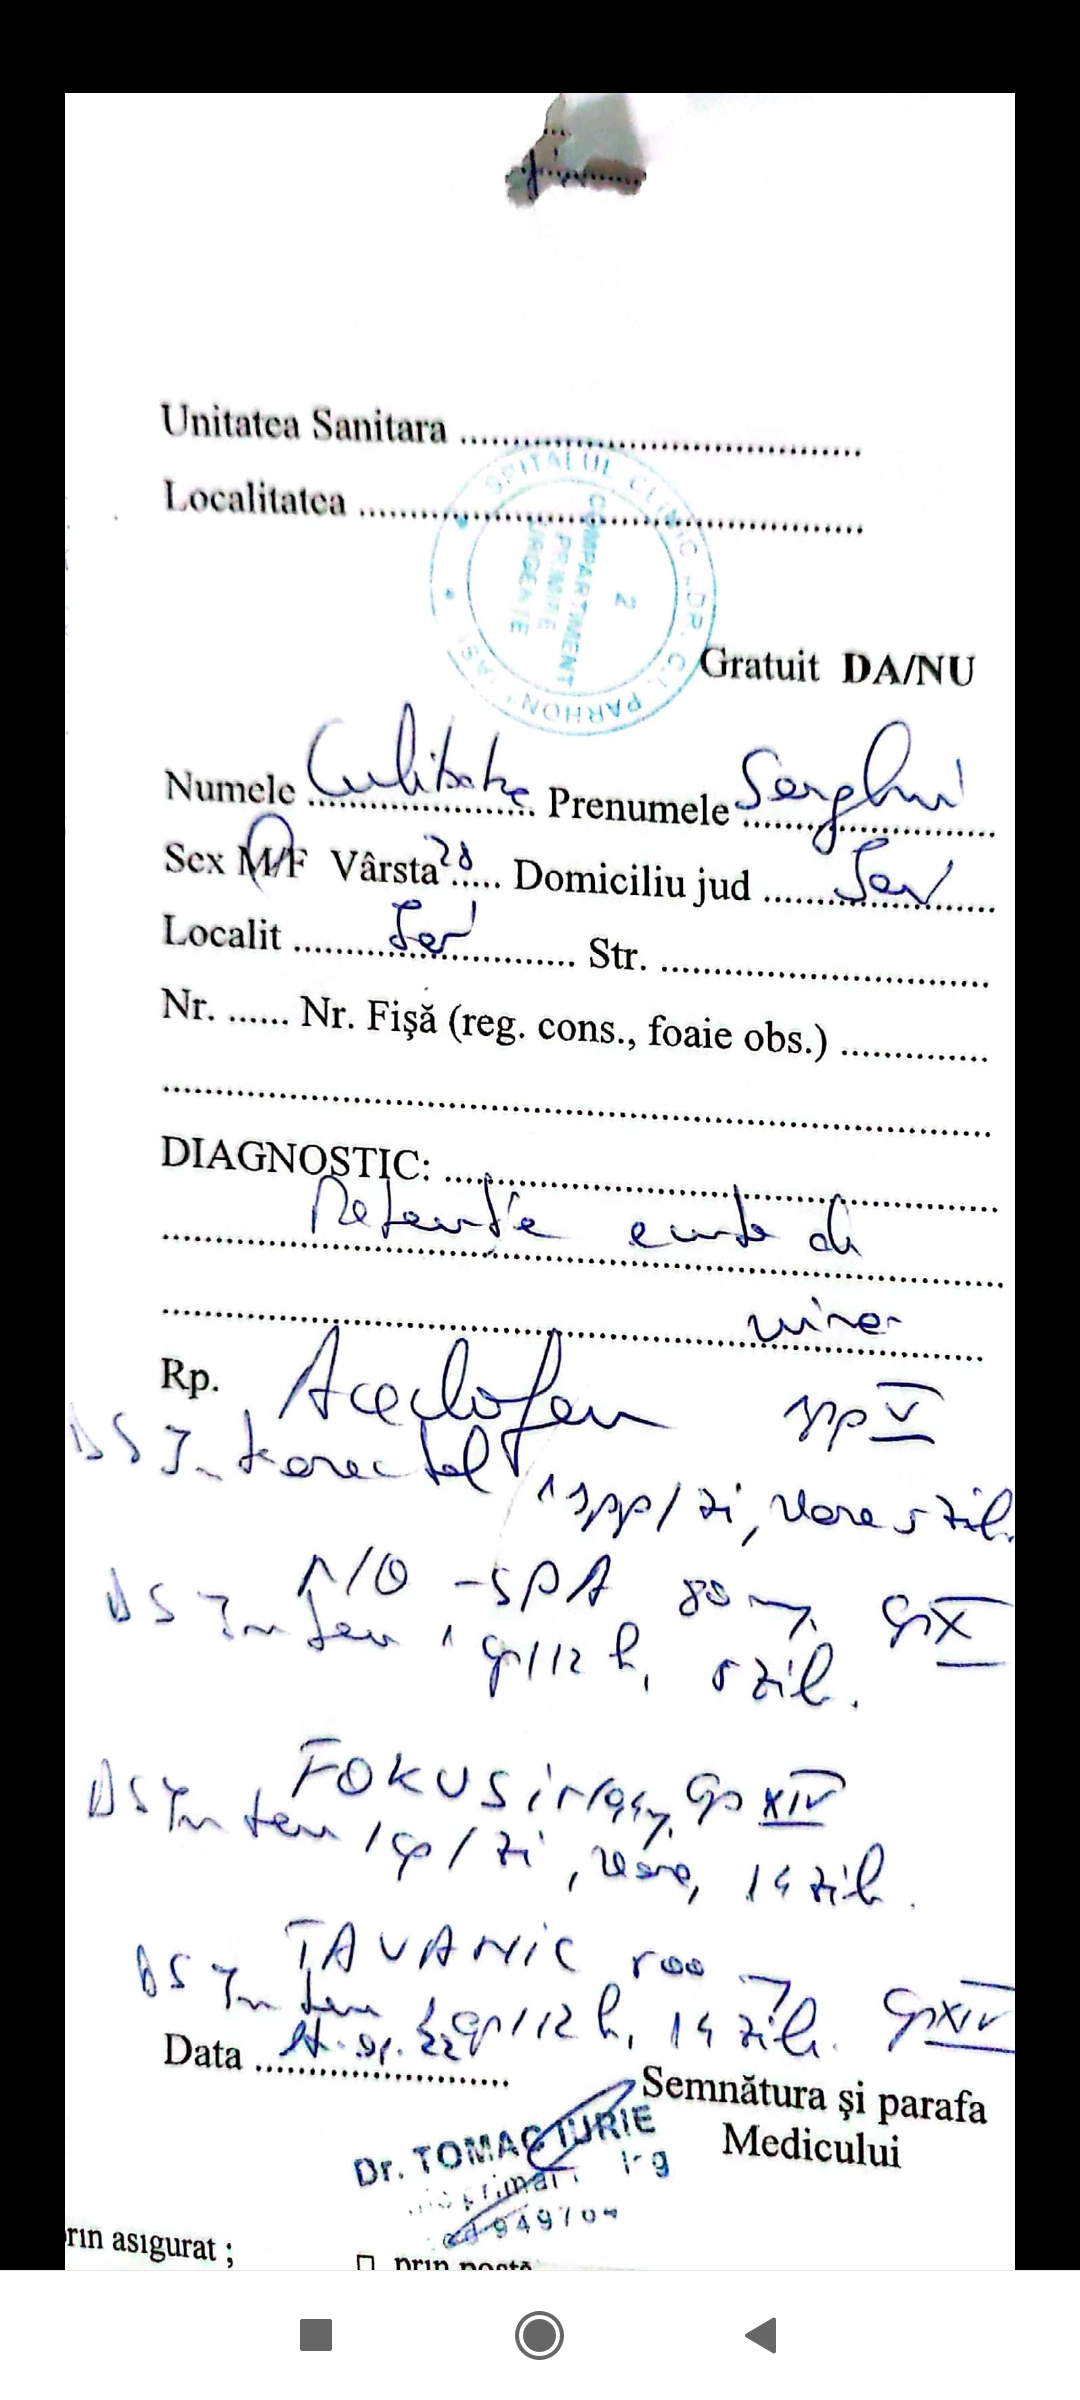 Unitatea Sanitara ........................................
Localitatea ..................................................
SPITALUL CLINIC "DR. C.I. PARHON" IAȘI
COMPARTIMENT
PRIMIRE
URGENȚE
2
Gratuit DA/NU
Numele ...................... Prenumele Serghui
Sex M/F Vârsta 28 ..... Domiciliu jud .......................
Localit ............................ Str. .................................
Nr. ...... Nr. Fişă (reg. cons., foaie obs.) ...............
DIAGNOSTIC: .......................................................
Retentie acuta de
urina
Rp. Aceclofen spp V
DS Intrarectal 1 spp/zi, seara 5 zile
NO-SPA 80 mg cp X
DS Intern 1 cp/12 h, 5 zile.
FOKUSIN 0,4 mg cp XIV
DS Intern 1 cp/zi, seara, 14 zile.
TAVANIC 500 mg cp XIV
DS Intern cp/12 h, 14 zile.
Data
Semnătura şi parafa
Medicului
Dr. TOMAC IURIE
primar
rin asigurat ;
□ prin poştă